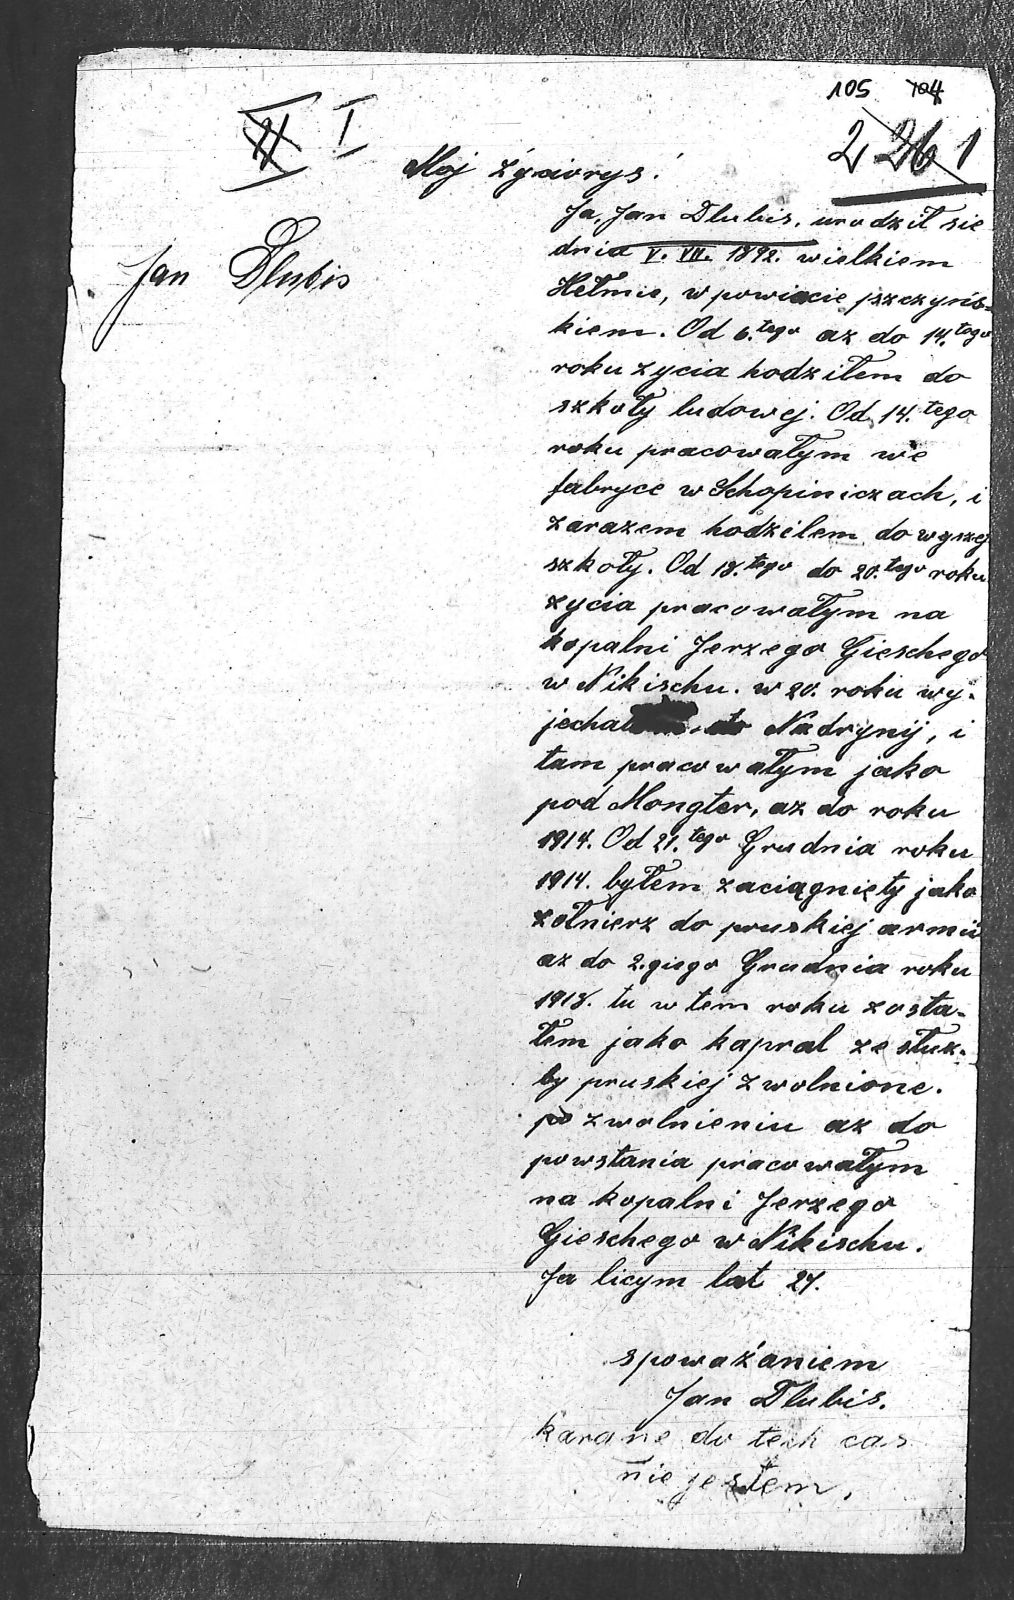 105 104
II I
2 261
Moj Życiorys!
Jan Dlubis
Ja, Jan Dlubis, urodził sie
dnia V. VII. 1892. wielkiem
Hełmie, w powiacie pszczyńs-
kiem. Od 6.tego az do 14.tego
roku zycia hodziłem do
szkoły ludowej. Od 14.tego
roku pracowałym we
fabryce w Schopiniczach, i
zarazem hodzilem do wyszej
szkoły. Od 18.tego do 20.tego roku
zycia pracowałym na
kopalni Jerzego Gieschego
w Nikischu. w 20. roku wy-
jechał do Nadrynij, i
tam pracowałym jako
pod Mongter, az do roku
1914. Od 21.tego Grudnia roku
1914. byłem zaciągnięty jako
zołnierz do pruskiej armii
az do 2.giego Grudnia roku
1918. tu w tem roku zosta-
łem jako kapral ze służ-
by pruskiej zwolnione.
po zwolnieniu az do
powstania pracowałym
na kopalni Jerzego
Gieschego w Nikischu.
Ja licym lat 27.
spoważaniem
Jan Dlubis.
karane do tech cas
nie jestem.